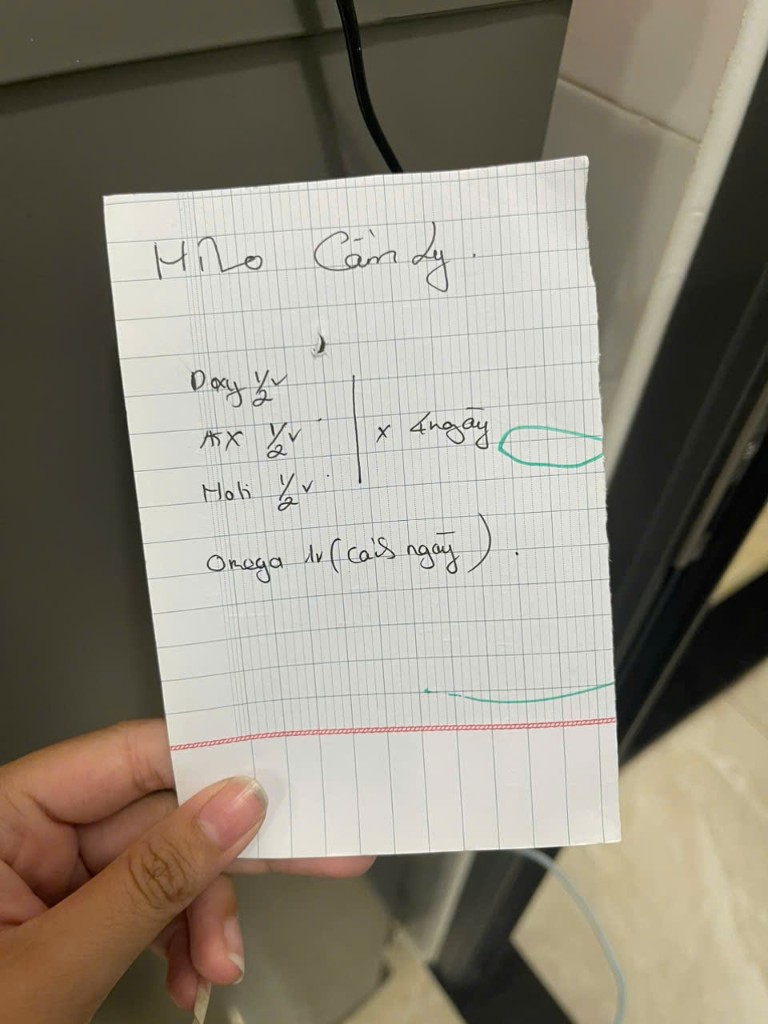 Milo Cẩm Ly.
Doxy 1/2v
ASX 1/2v
Moti 1/2v
x 4 ngày
Omega 1v (cả 5 ngày).